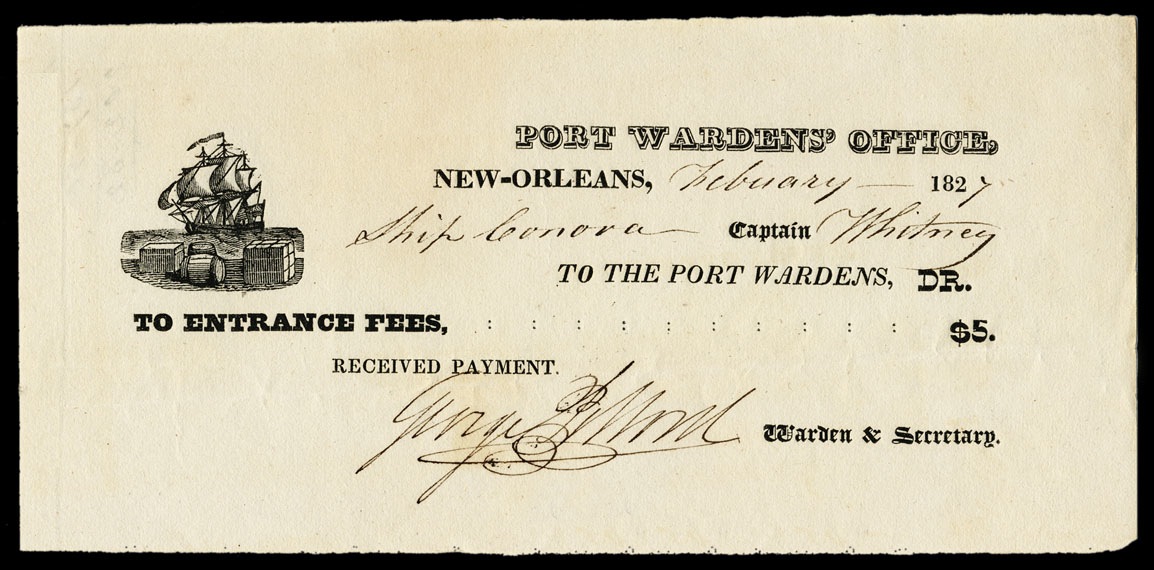 PORT WARDENS' OFFICE,
NEW-ORLEANS, Febuary — 1827
Ship Conova — Captain Whitney
TO THE PORT WARDENS, DR.
TO ENTRANCE FEES, : : : : : : : : : : $5.
RECEIVED PAYMENT.
George Warden & Secretary.